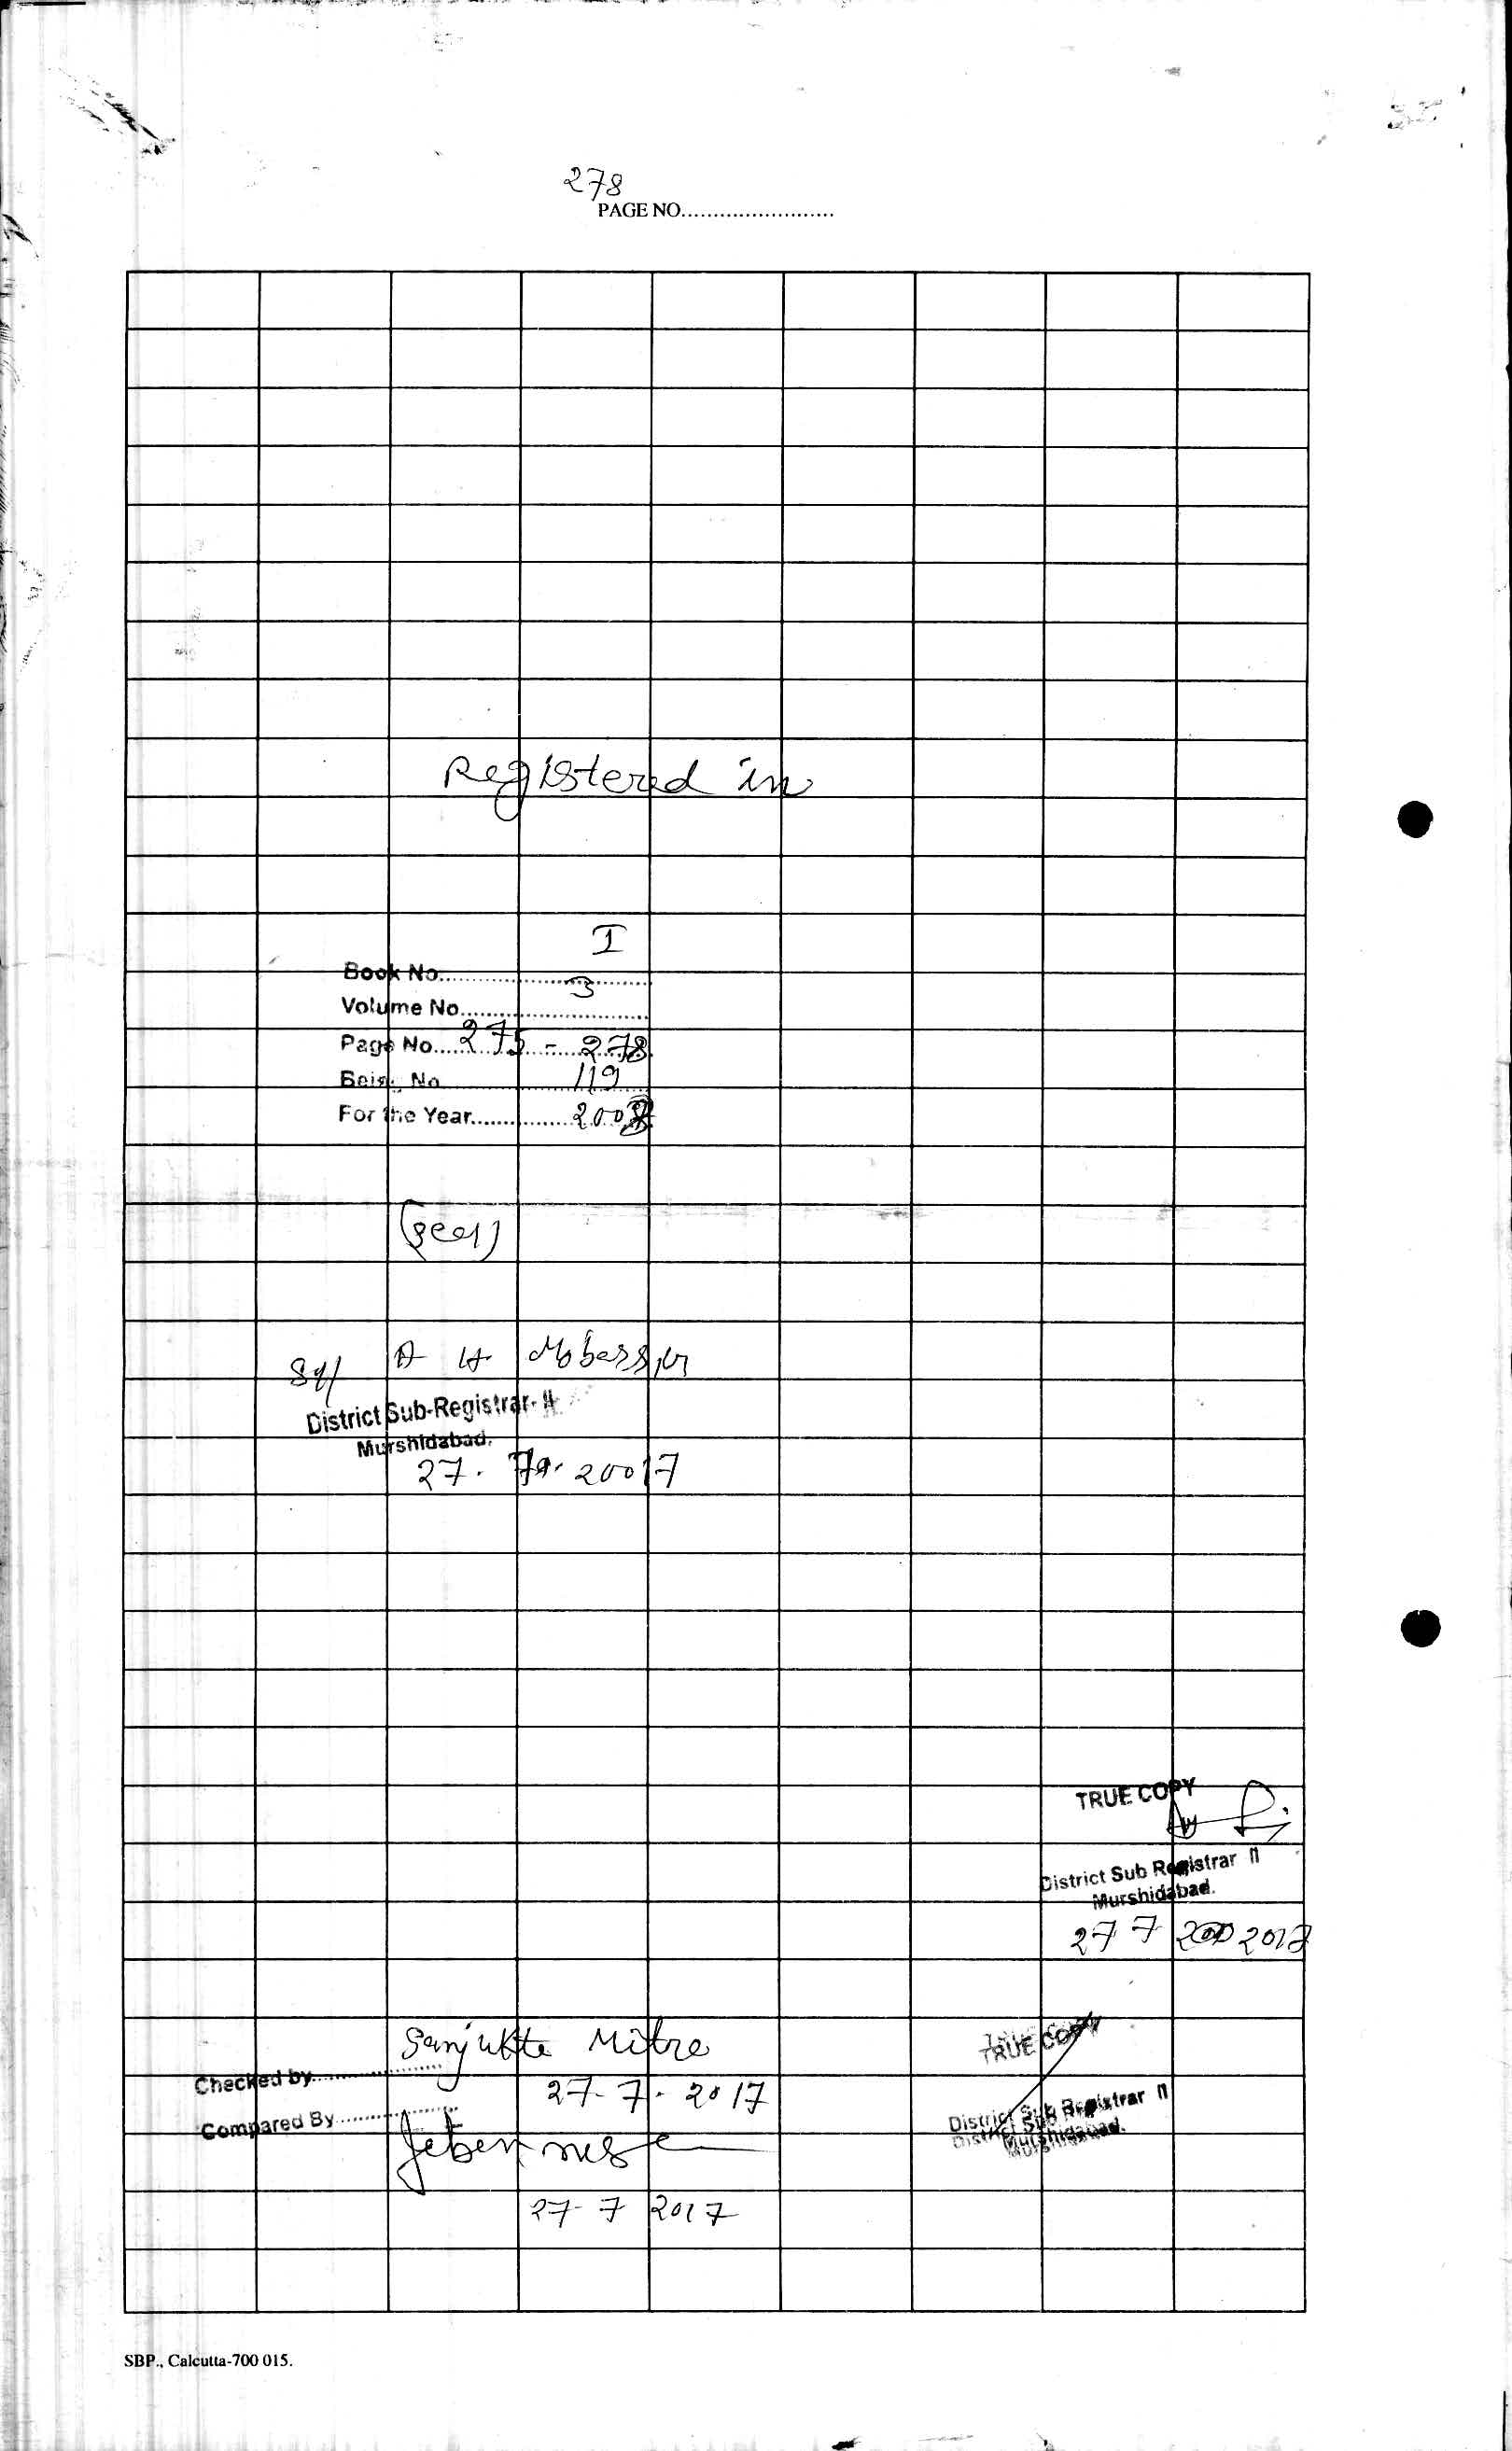 278
PAGE NO.........................
Registered in
Book No. I
Volume No. 3
Page No. 275 - 278
Being No. 119
For the Year
(Seal)
Sd/ A H Mobassir
District Sub-Registrar-II
Murshidabad.
27.
TRUE COPY
District Sub Registrar II
Murshidabad.
27 7 2017
Sanjukta Mitra
Checked by
27-7-2017
Compared By
27-7 2017
TRUE COPY
District Sub Registrar II
Murshidabad.
SBP., Calcutta-700 015.